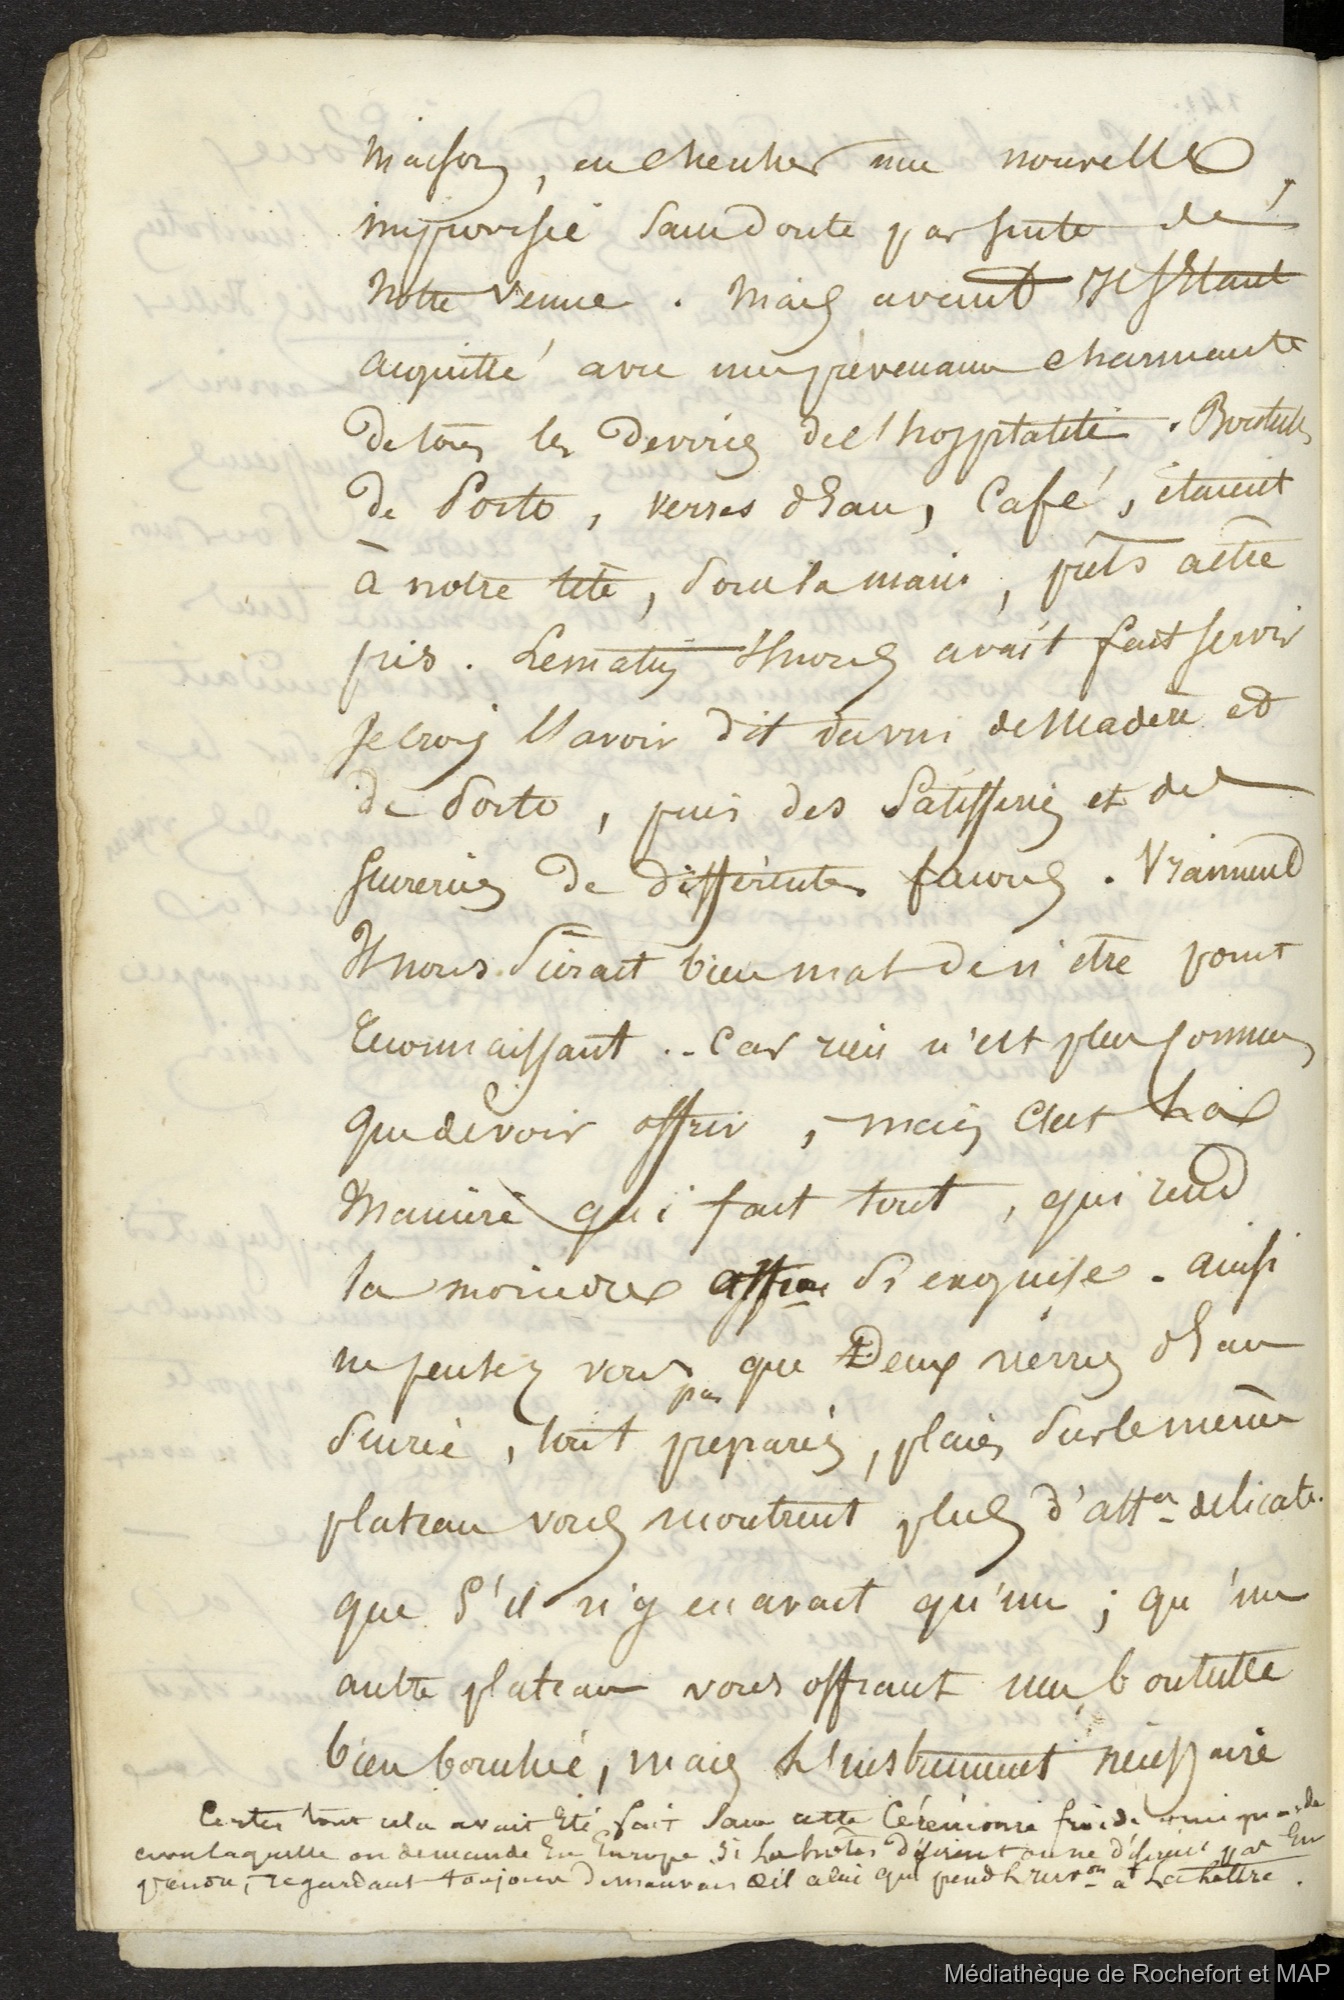 maison, en chercher une nouvelle
improvisée sans doute par suite de
notre venue. Mais avant Il s'était
acquitté avec une prévenance charmante
de tous les devoirs de l'hospitalité. Bouteilles
de Porto, verres d'Eau, Café, étaient
à notre tête, sous la main, prêts a être
pris. Le matin Il nous avait fait servir
Je crois l'avoir dit du vin de Madère et
de Porto, puis des Patisseries et des
sucreries de différentes facons. Vraiment
Il nous sièrait bien mal de n'être point
reconnaissant.. Car rien n'est plus commun
que devoir offrir, mais c'est La
Manière qui fait tout, qui rend
la moindre offre si exquise. ainsi
ne pensez vous pas que Deux verres d'Eau
sucrée, tout préparés, placés sur le même
plateau vous montrent plus d'atton délicate.
que s'il n'y en avait qu'un; qu'un
autre plateau vous offrant une bouteille
bien bouchée, mais L'instrument nécessaire
Certes tout cela avait Eté fait sans cette Cérémonie froide
avec laquelle on demande En Europe si Les hôtes Désirent ou ne désirent pas En
regardant toujours de mauvais œil celui qui prend L'invon à La Lettre.
Médiathèque de Rochefort et MAP